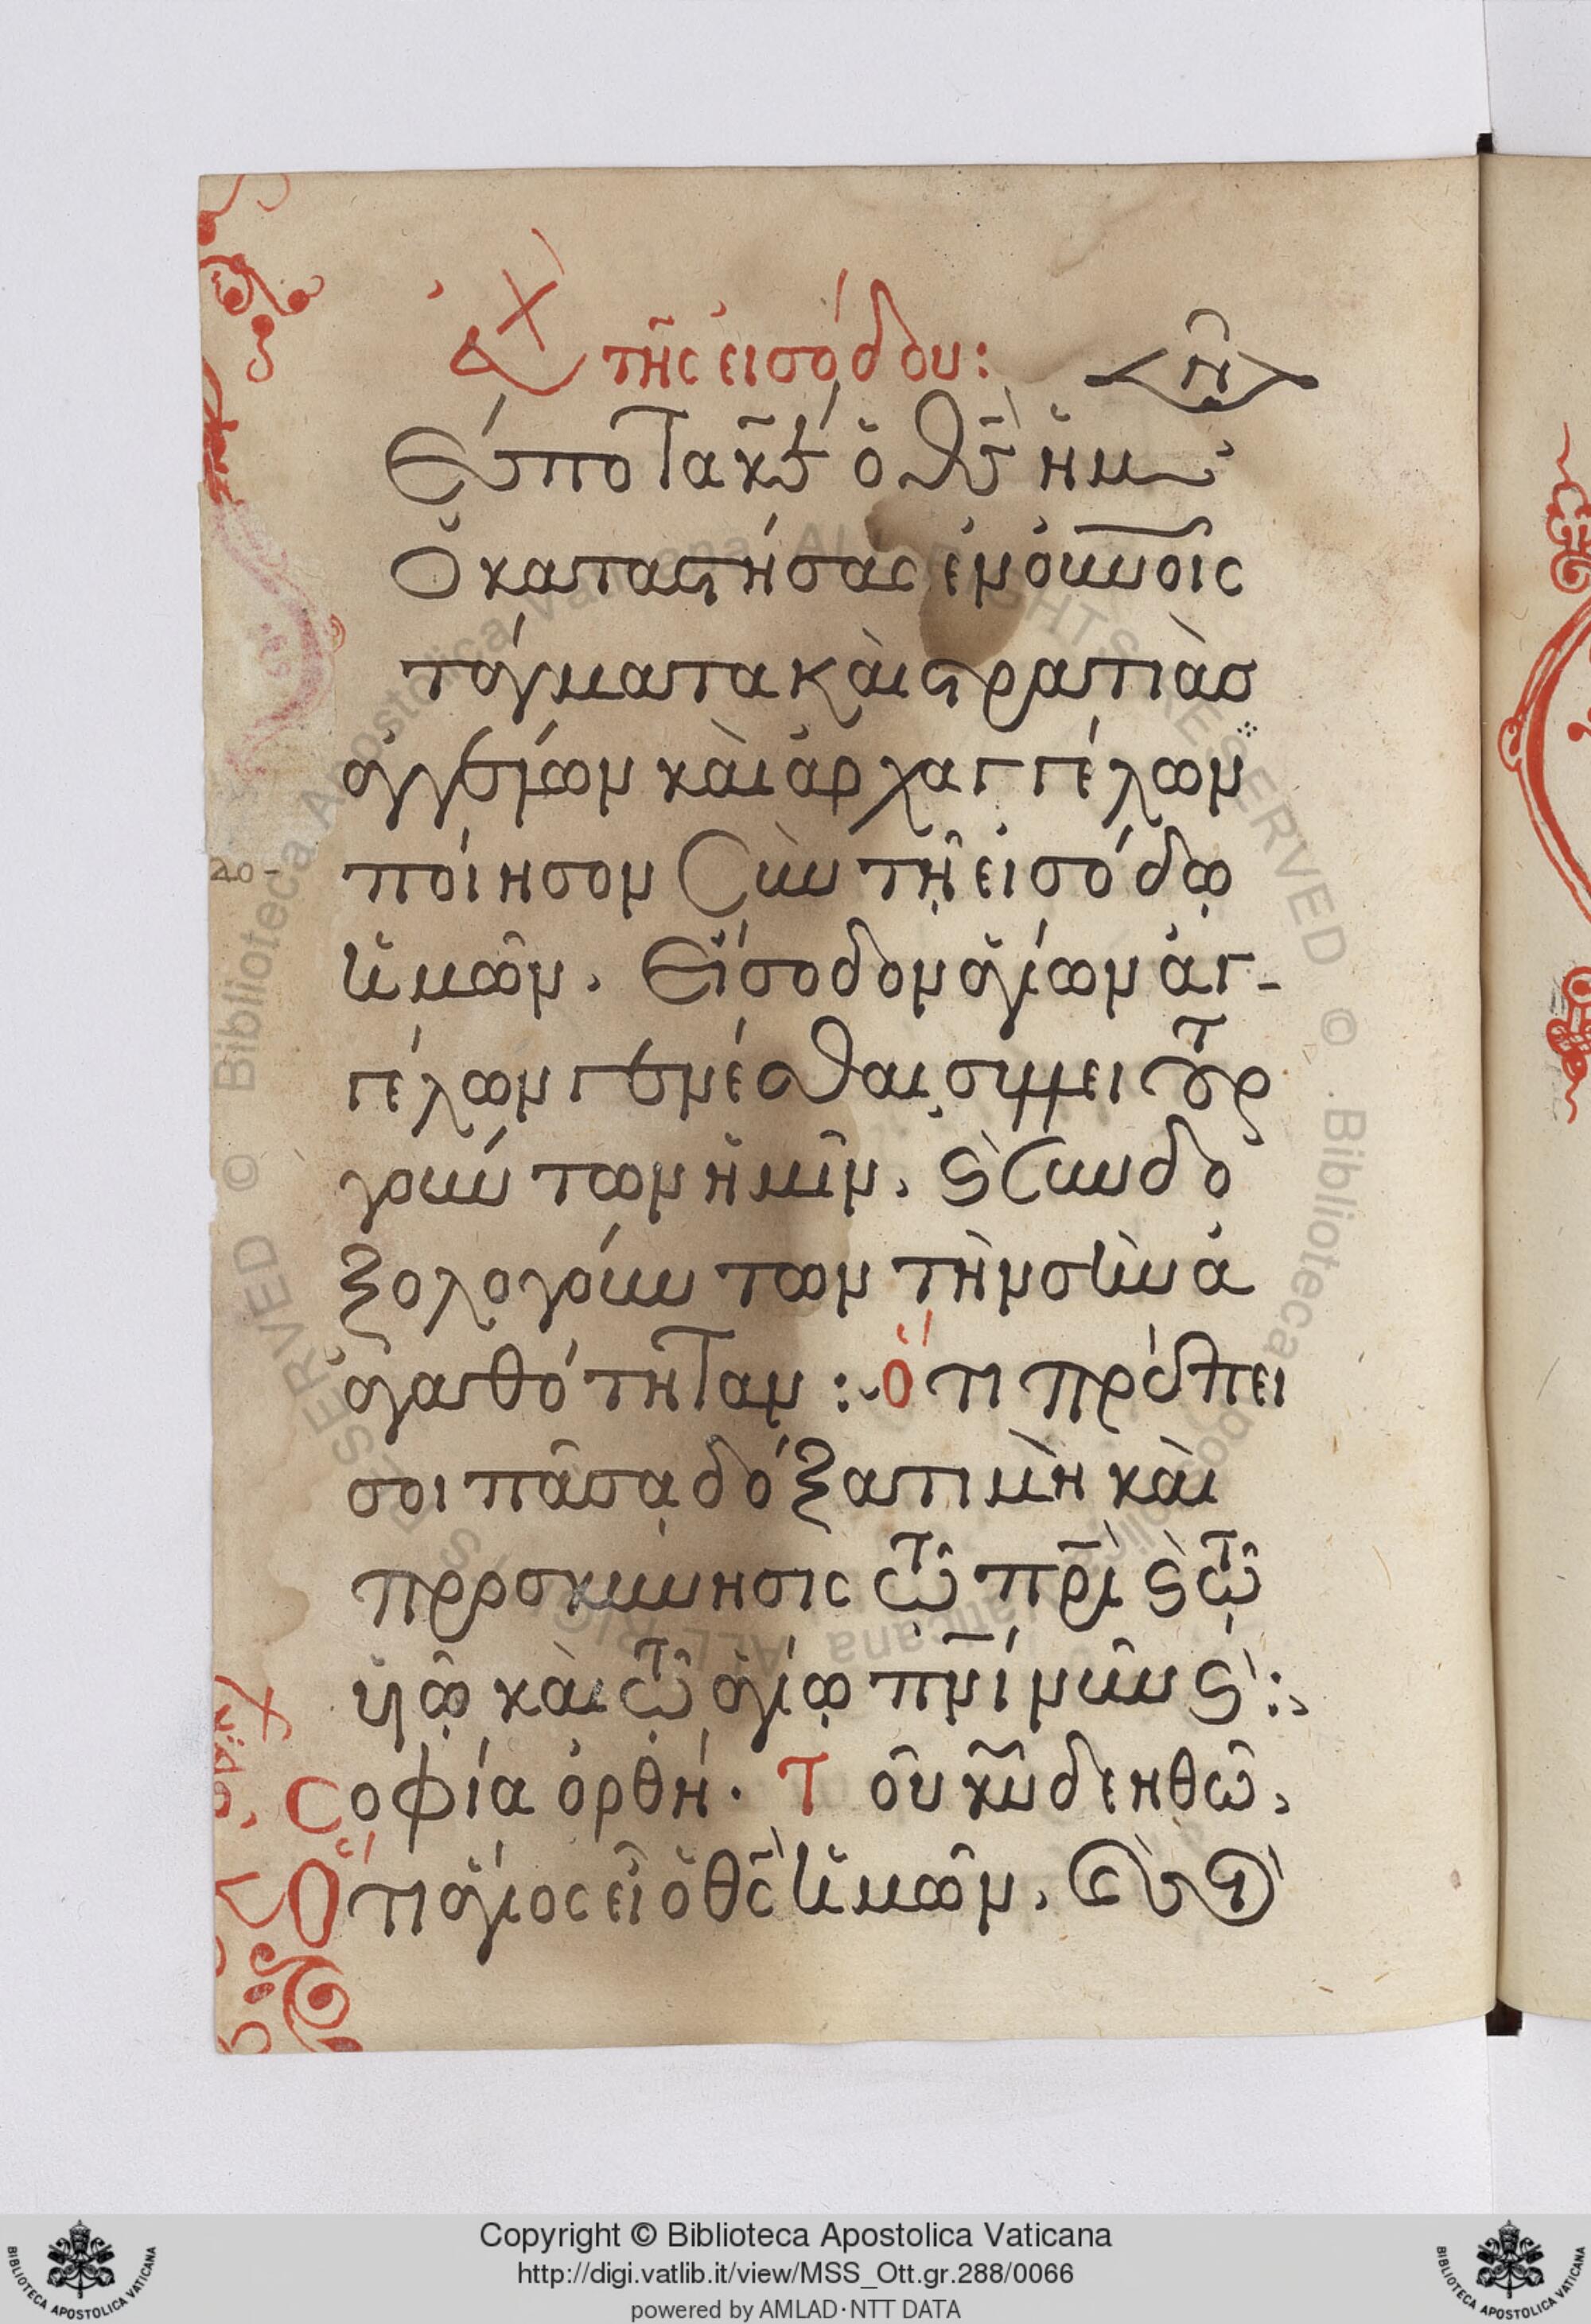 εὐχ τῆς εἰσόδου:
Δέσποτα κε ὁ θς ἡμων
Ὁ καταστήσας ἐν οὐνοῖς
τάγματα καὶ στρατιὰσ
ἀγγέλων καὶ ἀρχαγγέλων
ποίησον Σὺν τῇ εἰσόδῳ
ἡμῶν. Εἴσοδον ἁγίων ἀγ-
γέλων γενέσθαι, συλλειτουρ
γούντων ἡμῖν. καὶ Συνδο
ξολογούντων τὴν σὴν ἀ
γαθότηταν :~ Ὅτι πρέπει
σοι πᾶσα δόξα τιμὴ καὶ
προσκύνησις τῷ πρὶ καὶ τῷ
ὑῷ καὶ τῷ ἁγίῳ πνί νῦν καὶ:
Σοφία ὀρθή. Τοῦ κυ δεηθῶ,
Ὅτι ἅγιος εἶ ὁ θς ἡμῶν.
20-
Copyright © Biblioteca Apostolica Vaticana
http://digi.vatlib.it/view/MSS_Ott.gr.288/0066
powered by AMLAD·NTT DATA